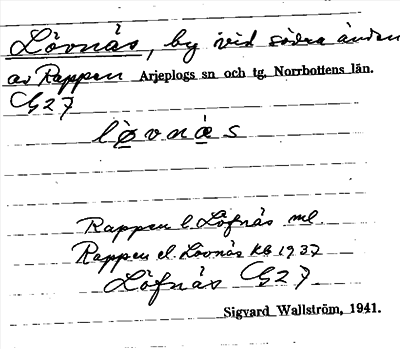 Lövnäs, by vid södra änden
av Rappen Arjeplogs sn och tg, Norrbottens län.
G27
lövnäs
Rappen l. Löfnäs ml.
Rappen el. Lövnäs KB 1937
Löfnäs G27
Sigvard Wallström, 1941.